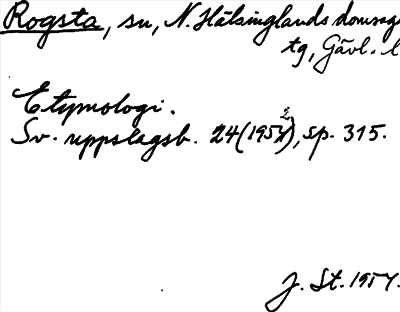 Rogsta, sn, N. Hälsinglands domsag
tg, Gävl. l
Etymologi.
Sv. uppslagsb. 24 (1952), sp. 315.
J. St. 1957.